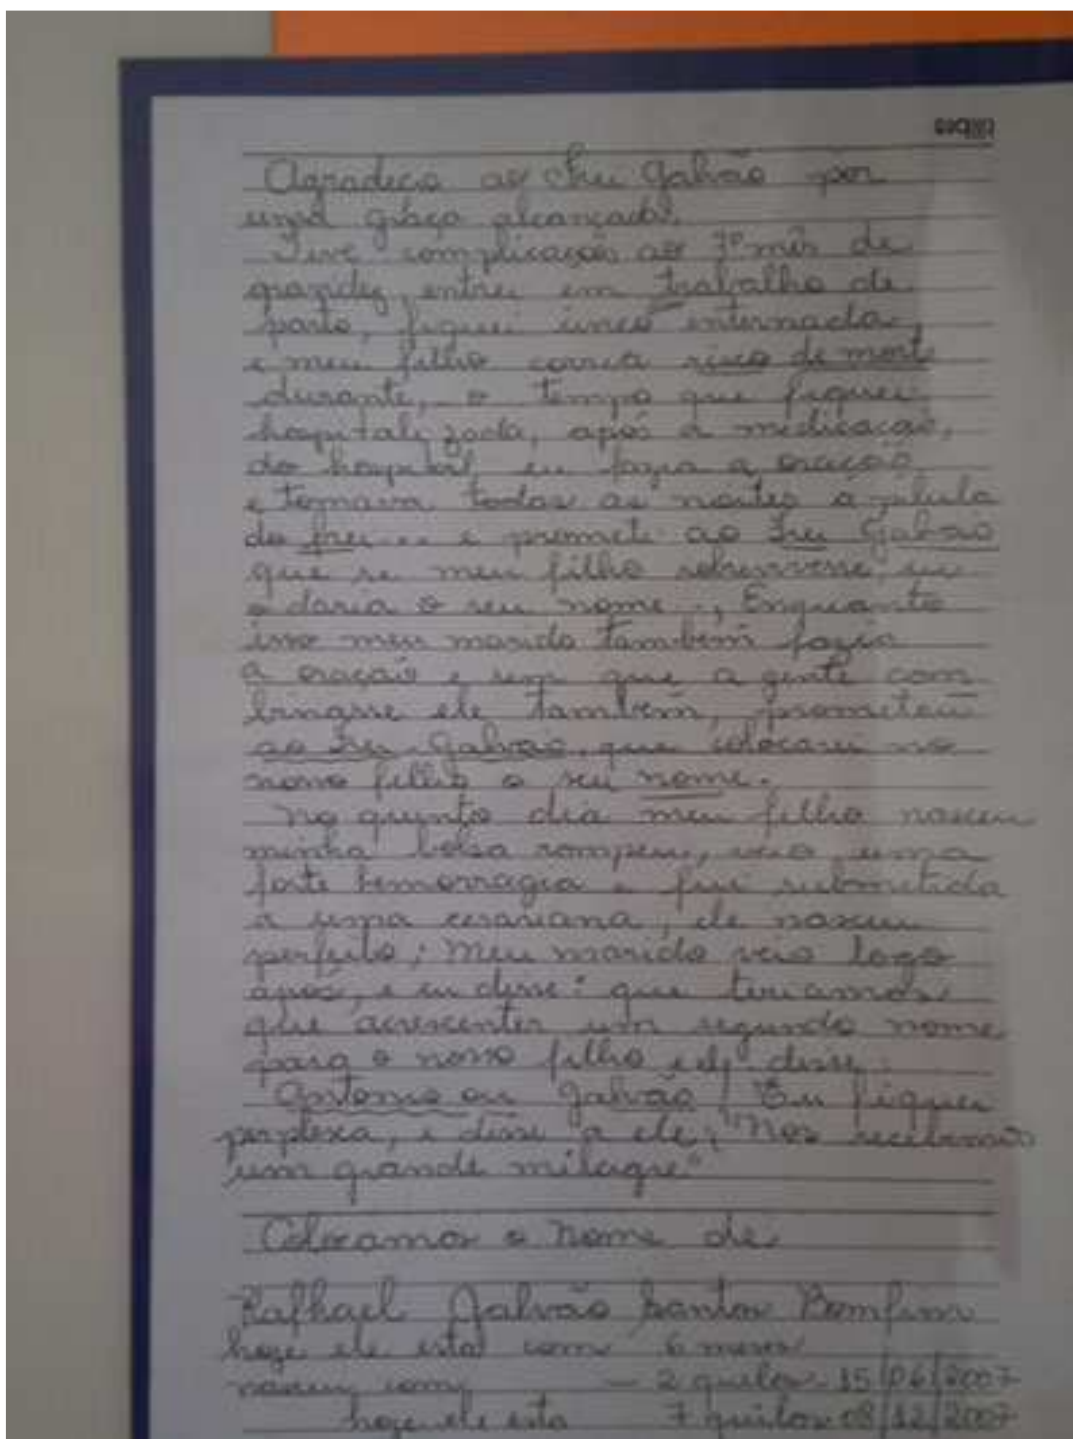 Agradeço ao Frei Galvão por
uma graça alcançada.
Tive complicações ao 7º mês de
gravidez, entrei em trabalho de
parto, fiquei internada,
e meu filho corria risco de morte
durante, o tempo que fiquei
hospitalizada, após a medicação,
do hospital eu fazia a oração
e tomava todas as noites a pilula
do frei... e prometi ao Frei Galvão
que se meu filho sobrevivesse, eu
o daria o seu nome., Enquanto
isso meu marido também fazia
a oração e sem que a gente com
binasse ele também, prometeu
ao Frei Galvão, que colocaria no
nosso filho o seu nome.
No quinto dia meu filho nasceu
minha bolsa rompeu, veio uma
forte hemorragia e fui submetida
a uma cesariana, ele nasceu
perfeito; Meu marido veio logo
após, e eu disse: que teriamos
que acrescentar um segundo nome
para o nosso filho e ele disse:
Antonio ou Galvão! Eu fiquei
perplexa, e disse a ele; "Nos recebemos
um grande milagre"
Colocamos o nome de
Rafhael Galvão Santos Bomfim
hoje ele esta com 6 meses
nasceu com, — 2 quilos - 15/06/2007
hoje ele esta 7 quilos 08/12/2007